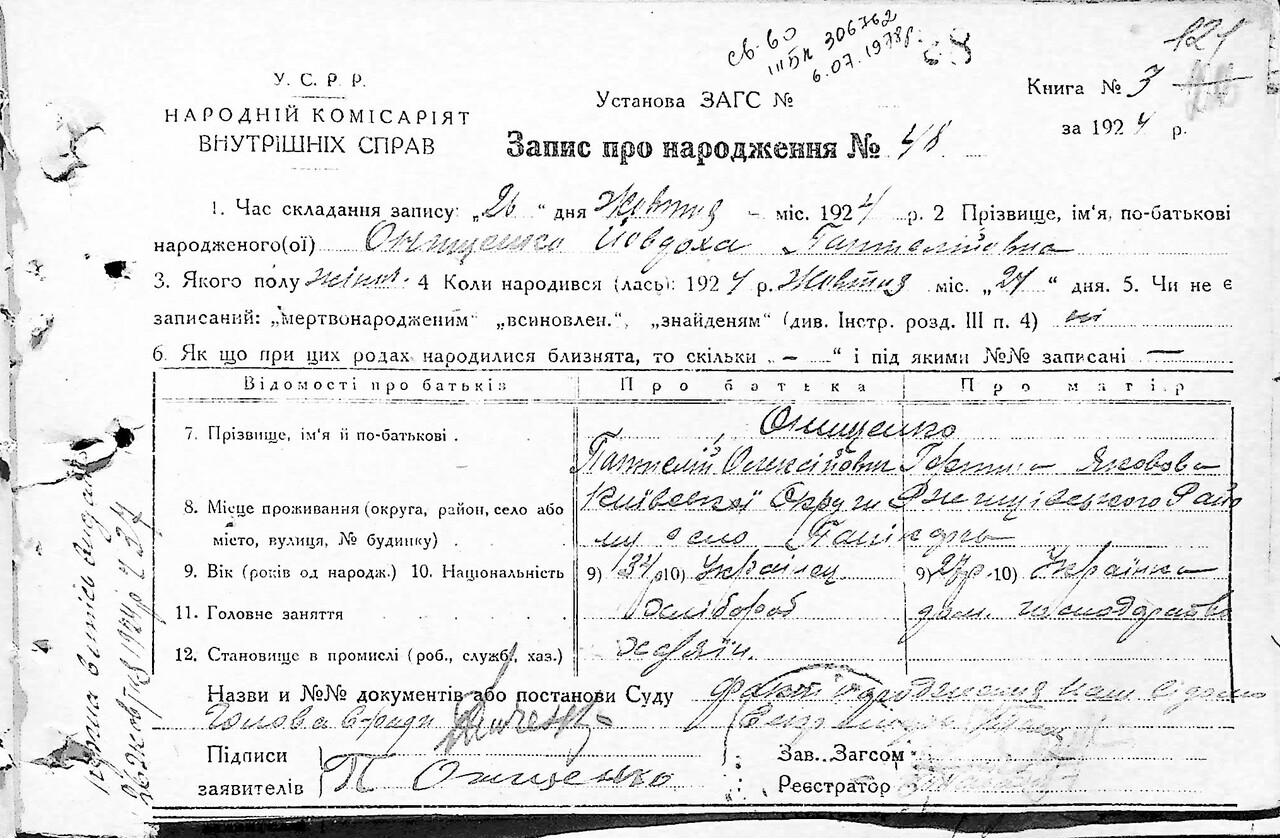 св. 60
ІІІБК 306762
6.07.1978р.
121
У. С. Р. Р.
НАРОДНІЙ КОМІСАРІЯТ
ВНУТРІШНІХ СПРАВ
Установа ЗАГС №
Книга № 3
за 1924 р.
Запис про народження № 48
1. Час складання запису: „26“ дня Жовтня міс. 1924 р. 2 Прізвище, ім'я, по-батькові
народженого(ої) Онищенко Йовдоха Пантеліївна
3. Якого полу жіноч. 4 Коли народився (лась): 1924 р. Жовтня міс. „21“ дня. 5. Чи не є
записаний: „мертвонародженим“ „всиновлен.“, „знайденям“ (див. Інстр. розд. III п. 4) ні
6. Як що при цих родах народилися близнята, то скільки „ – “ і під якими №№ записані —
Відомості про батьків Про батька Про матір
7. Прізвище, ім'я й по-батькові Онищенко
Пантелій Олексійович Горпина Яковова
8. Місце проживання (округа, район, село або Київської Округи Ржищівського Райо
місто, вулиця, № будинку) ну село Панікарь
9. Вік (років од народж.) 10. Національність 9) 34р 10) Українец 9) 27р. 10) Українка
11. Головне заняття хлібороб дом. господарство
12. Становище в промислі (роб., служб., хаз.) хазяїн.
Назви и №№ документів або постанови Суду факт народження нам відомо
Голова с/ради
Підписи
заявителів П Онищенко
Зав. Загсом
Реєстратор
випись видана